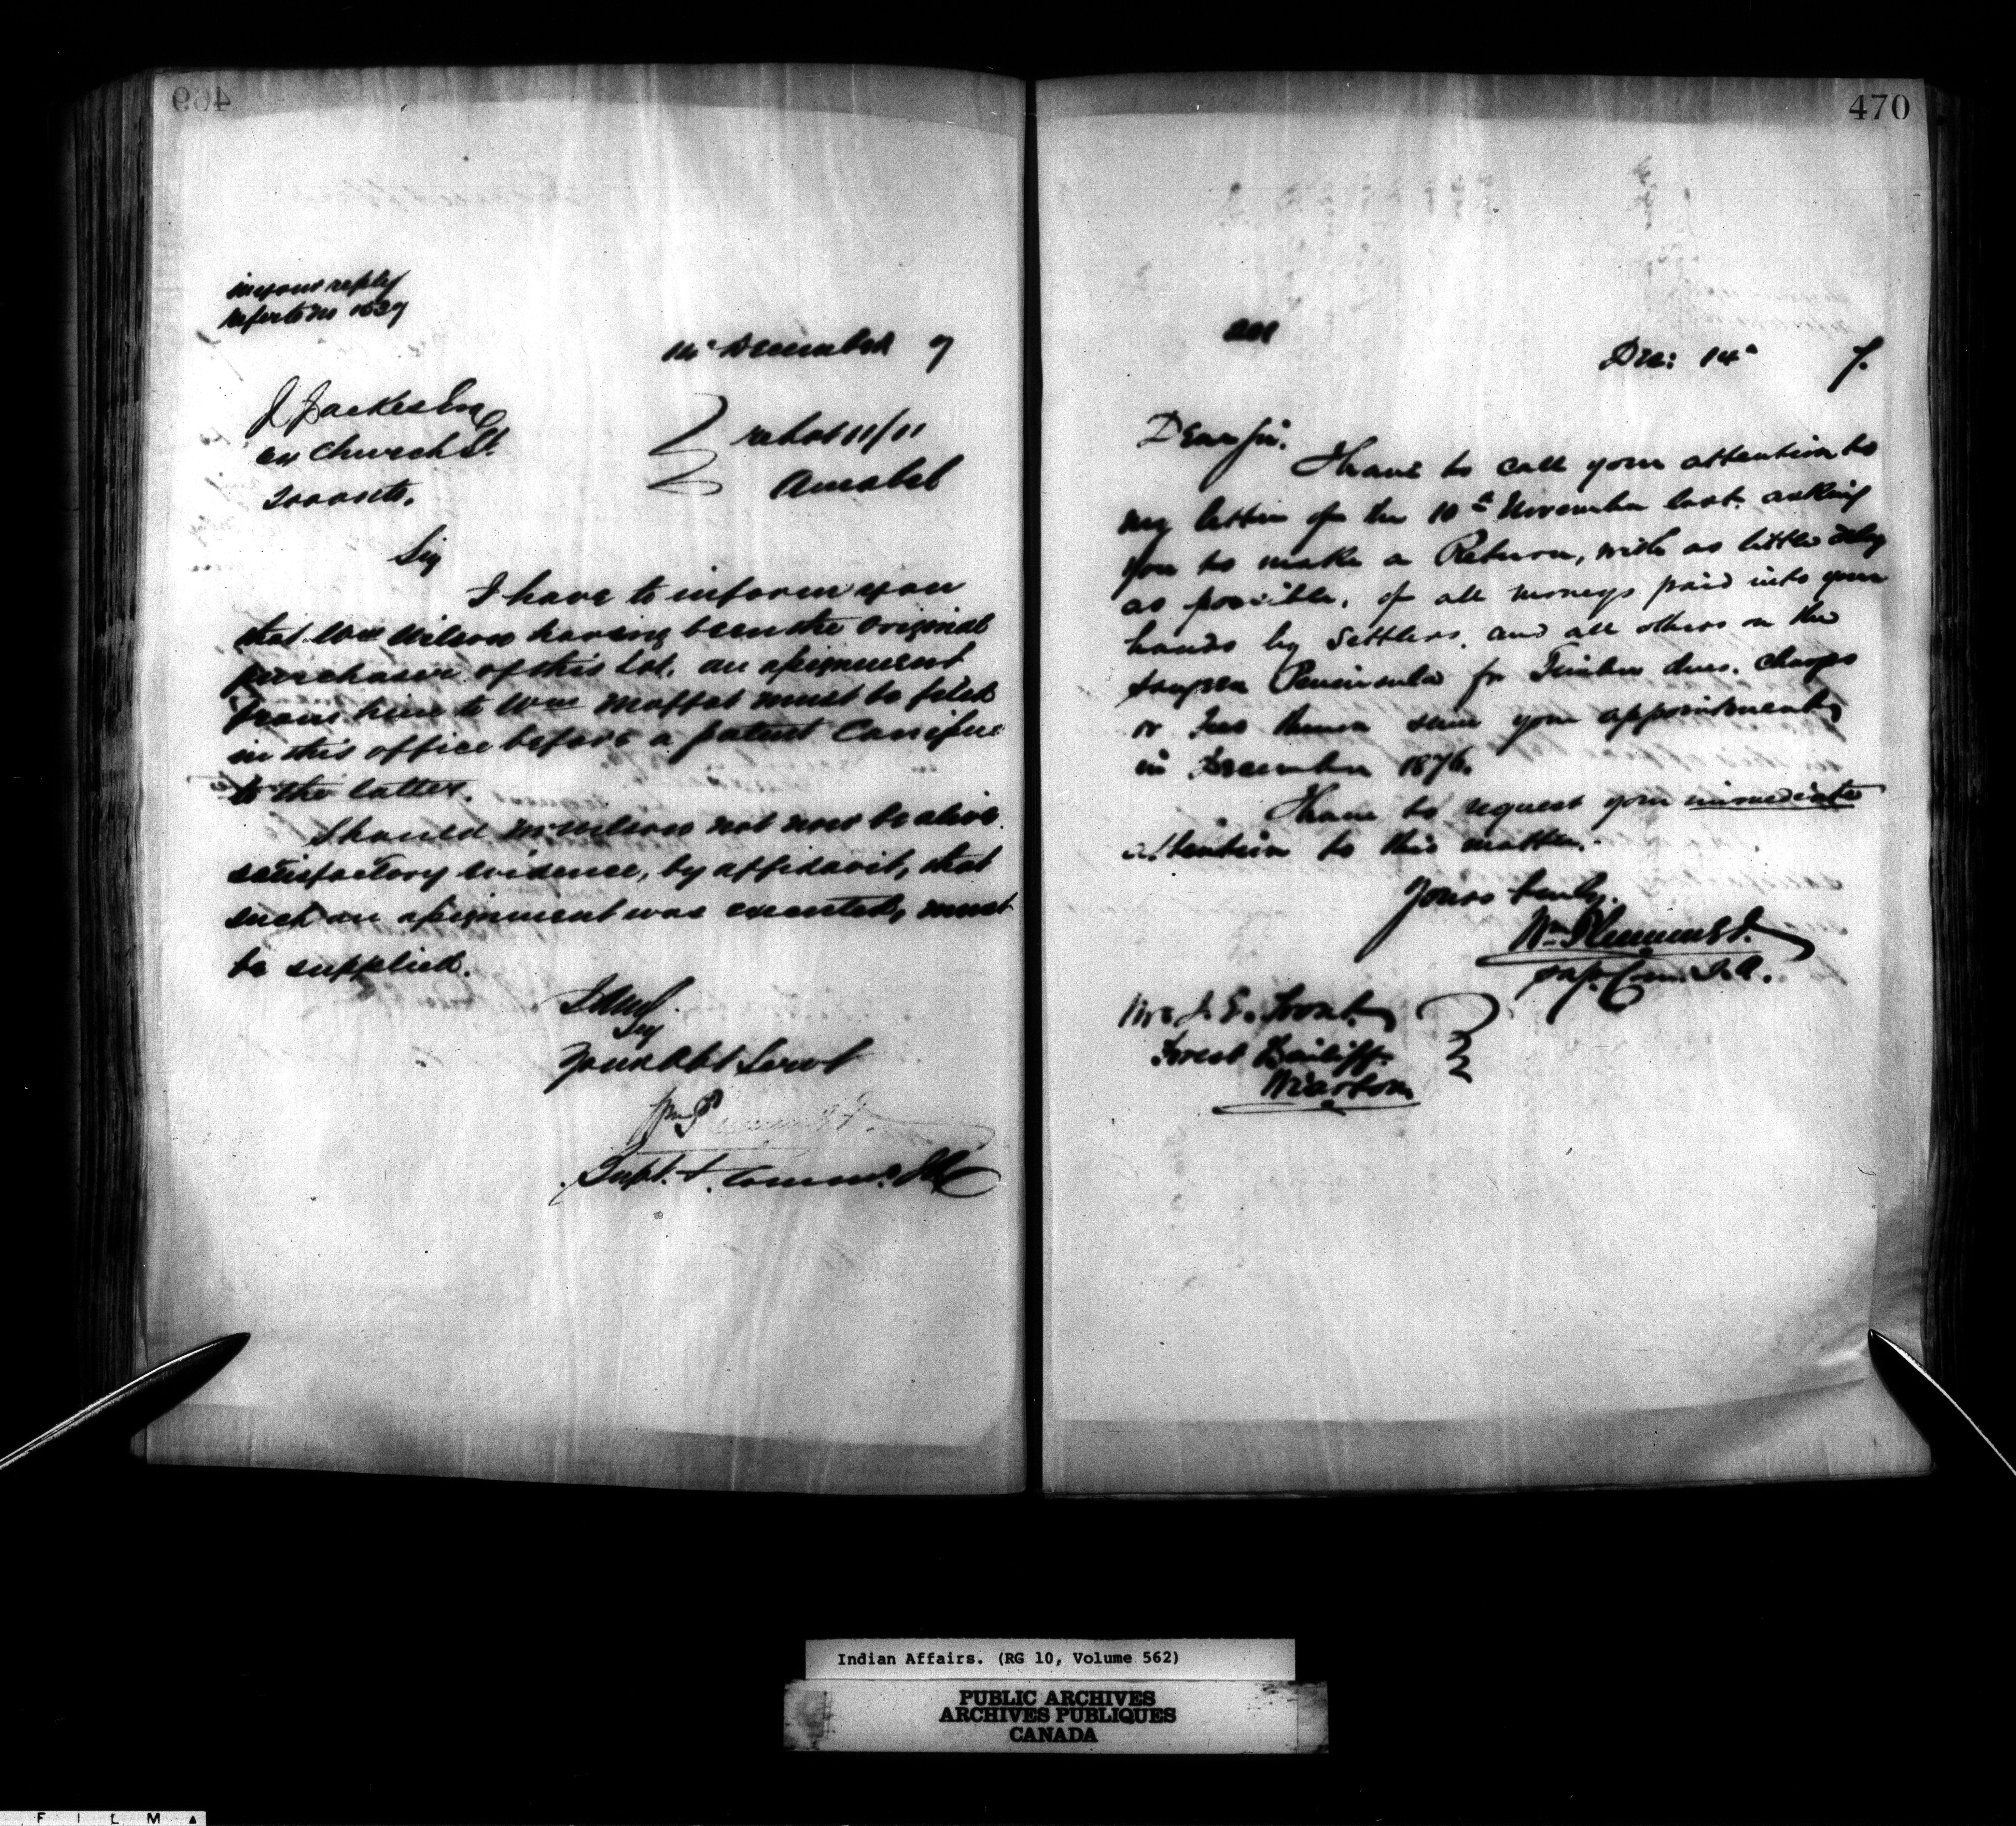 469
in your reply
refer to no 1639
14th December 7
J Jackes Esq
Church St.
Toronto.
re Lot 11/11
Amabel
Sir
I have to inform you
that Wm Wilson having been the original
purchaser of this Lot. an assignment
from him to Wm Moffat must be filed
in this office before a patent Can issue
to the latter.
Should Mr Wilson not now be alive.
satisfactory evidence, by affidavit, that
such an assignment was executed, must
be supplied.
I am
Sir
Your Obt Servt
Wm Plummer
Supt. & Commr. I.A
470
Dec: 14th 7.
Dear Sir.
I have to call your attention to
my letter of the 10th November last. asking
you to make a Return, with as little delay
as possible, of all moneys paid into your
hands by Settlers. and all others on the
Saugeen Peninsula for Timber dues. charges
or fees thereon since your appointment
in December 1876.
I have to request your immediate
attention to this matter.
Yours truly.
Wm Plummer
Sup. Com. I. A.
Mr. J. E. Troat
Forest Bailiff.
Wiarton
Indian Affairs. (RG 10, Volume 562)
PUBLIC ARCHIVES
ARCHIVES PUBLIQUES
CANADA
FILM